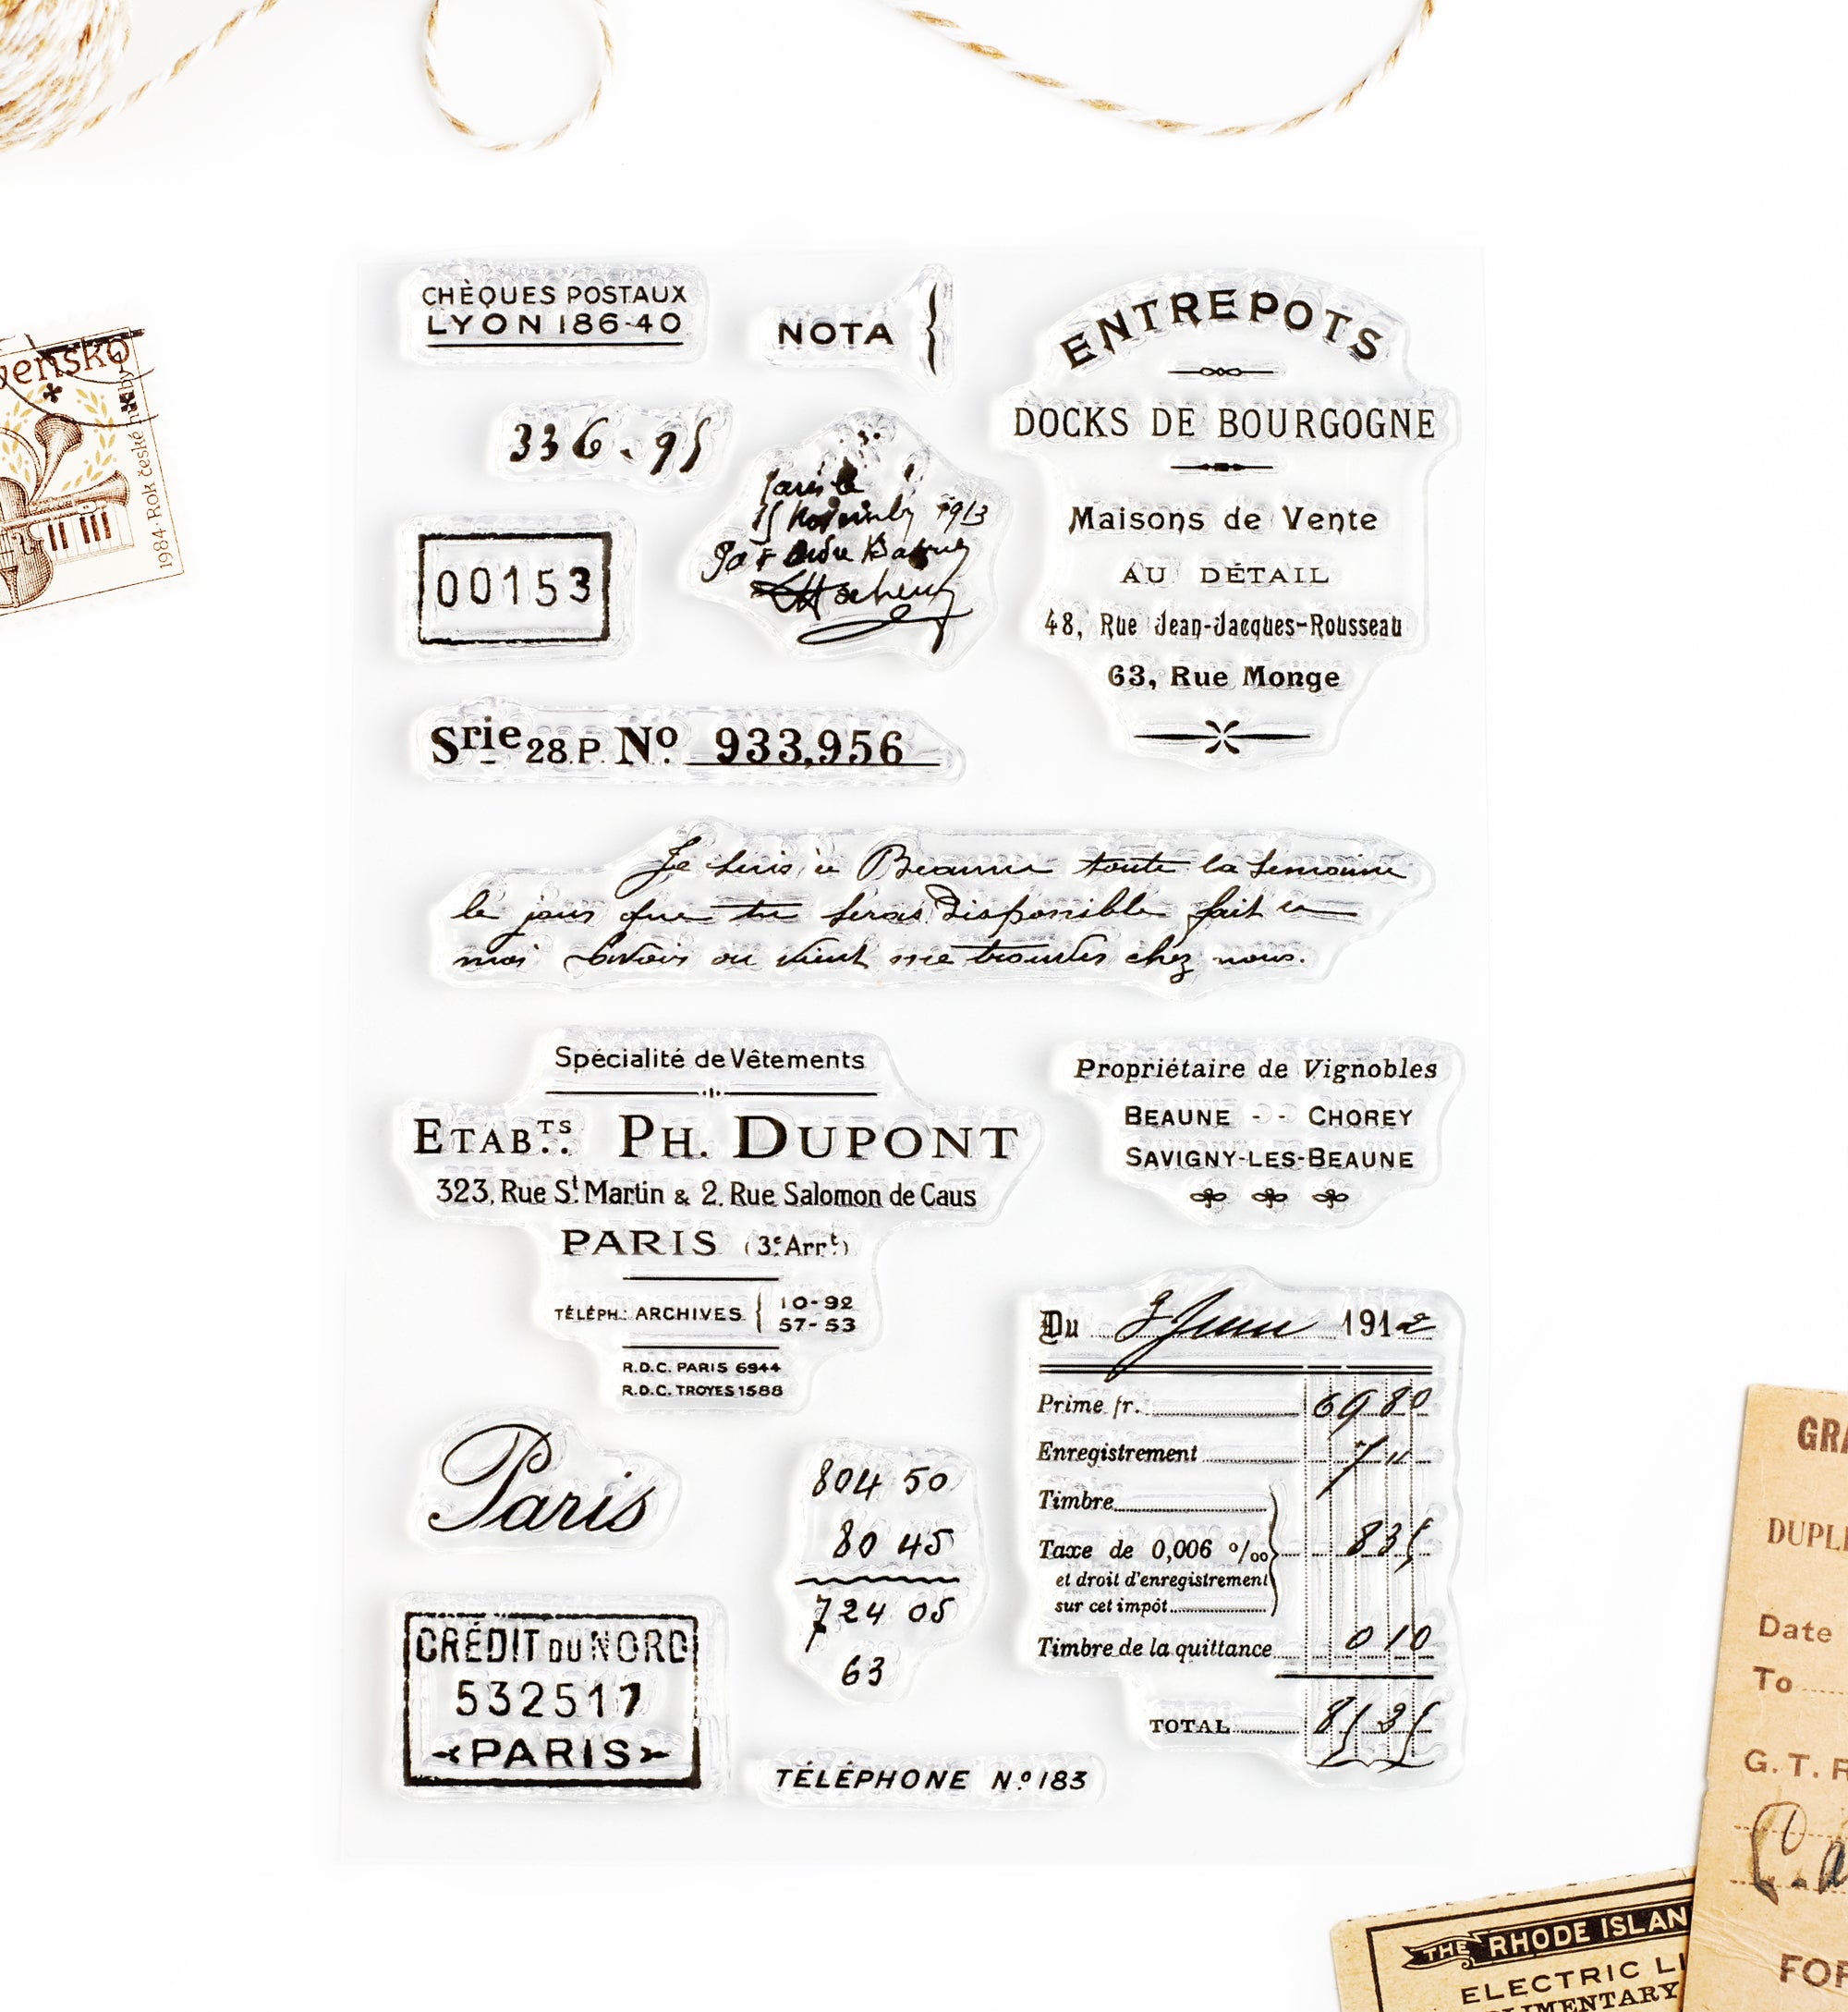 CHÈQUES POSTAUX
LYON 186-40
NOTA
ENTREPOTS
DOCKS DE BOURGOGNE
Maisons de Vente
AU DÉTAIL
48, Rue Jean-Jacques-Rousseau
63, Rue Monge
336.95
1913
00153
Srie 28.P. No. 933,956
Je suis à Beaune toute la semaine
le jour que tu seras disponible fait le
moi savoir ou vient me trouver chez nous.
Spécialité de Vêtements
ETABTS. PH. DUPONT
323, Rue St Martin & 2, Rue Salomon de Caus
PARIS (3e Arrt)
TÉLÉPH.: ARCHIVES { 10-92
57-53
R.D.C. PARIS 6944
R.D.C. TROYES 1588
Propriétaire de Vignobles
BEAUNE - - CHOREY
SAVIGNY-LES-BEAUNE
Du Juin 1912
Prime fr. 69 80
Enregistrement 7 "
Timbre
Taxe de 0,006 0/00 8 35
et droit d'enregistrement
sur cet impôt
Timbre de la quittance 0 10
TOTAL 85 25
Paris
804 50
80 45
724 05
63
CRÉDIT DU NORD
532517
PARIS
TÉLÉPHONE No 183
1984 · Rok české hudby
GRA
DUPLI
Date
To
G. T. R
FOR
THE RHODE ISLAN
ELECTRIC LI
LIMENTARY